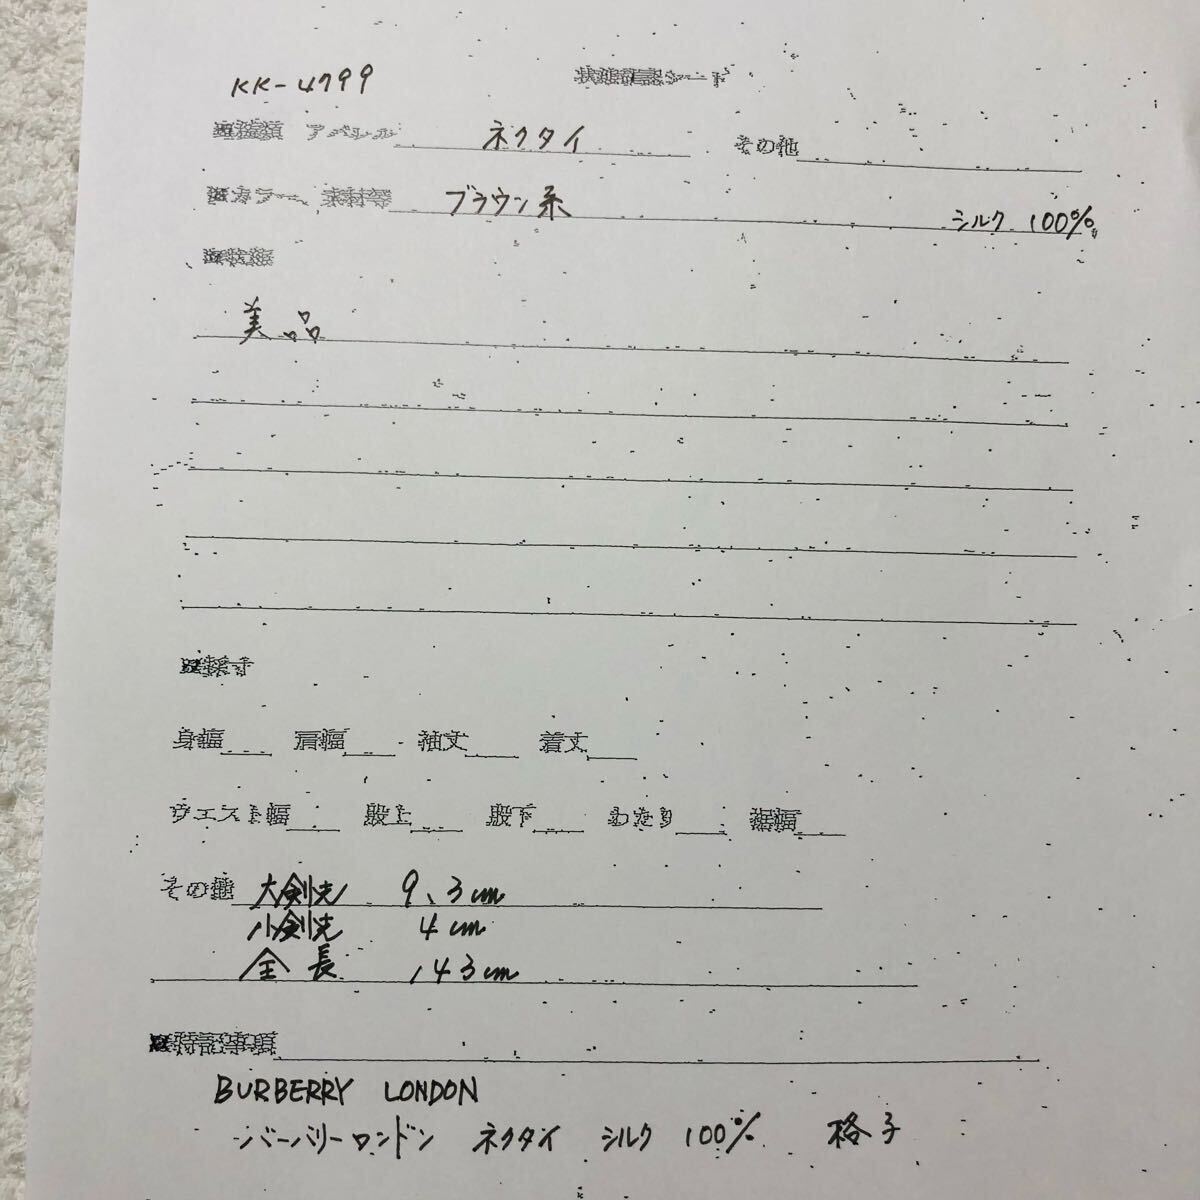 KK-4799 状態確認シート
■種類 アパレル ネクタイ その他
■カラー、素材等 ブラウン系 シルク 100%
■状態
美品
■採寸
身幅 肩幅 袖丈 着丈
ウエスト幅 股上 股下 わたり 裾幅
その他 大剣先 9、3cm
小剣先 4cm
全長 143cm
■特記事項
BURBERRY LONDON
バーバリーロンドン ネクタイ シルク 100% 格子